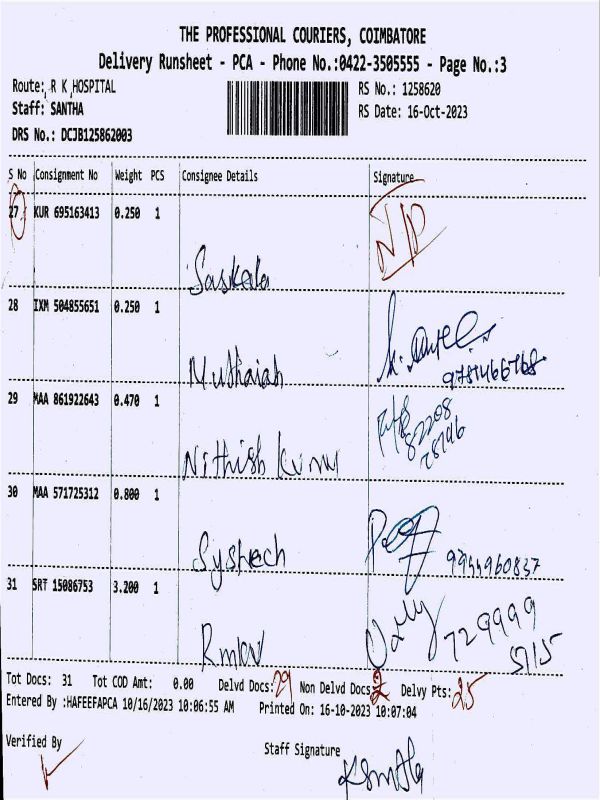 THE PROFESSIONAL COURIERS, COIMBATORE
Delivery Runsheet - PCA - Phone No.:0422-3505555 - Page No.:3
Route: R K HOSPITAL RS No.: 1258620
Staff: SANTHA RS Date: 16-Oct-2023
DRS No.: DCJB125862003
S No Consignment No Weight PCS Consignee Details Signature
27 KUR 695163413 0.250 1 N/D
Saskala
28 IXM 504855651 0.250 1
Muthaiah
29 MAA 861922643 0.470 1 82208
78796
Nithish Kumar
30 MAA 571725312 0.800 1
Systech 9944960837
31 SRT 15086753 3.200 1 729999
5715
Tot Docs: 31 Tot COD Amt: 0.00 Delvd Docs: 29 Non Delvd Docs 2 Delvy Pts: 25
Entered By :HAFEEFAPCA 10/16/2023 10:06:55 AM Printed On: 16-10-2023 10:07:04
Verified By Staff Signature